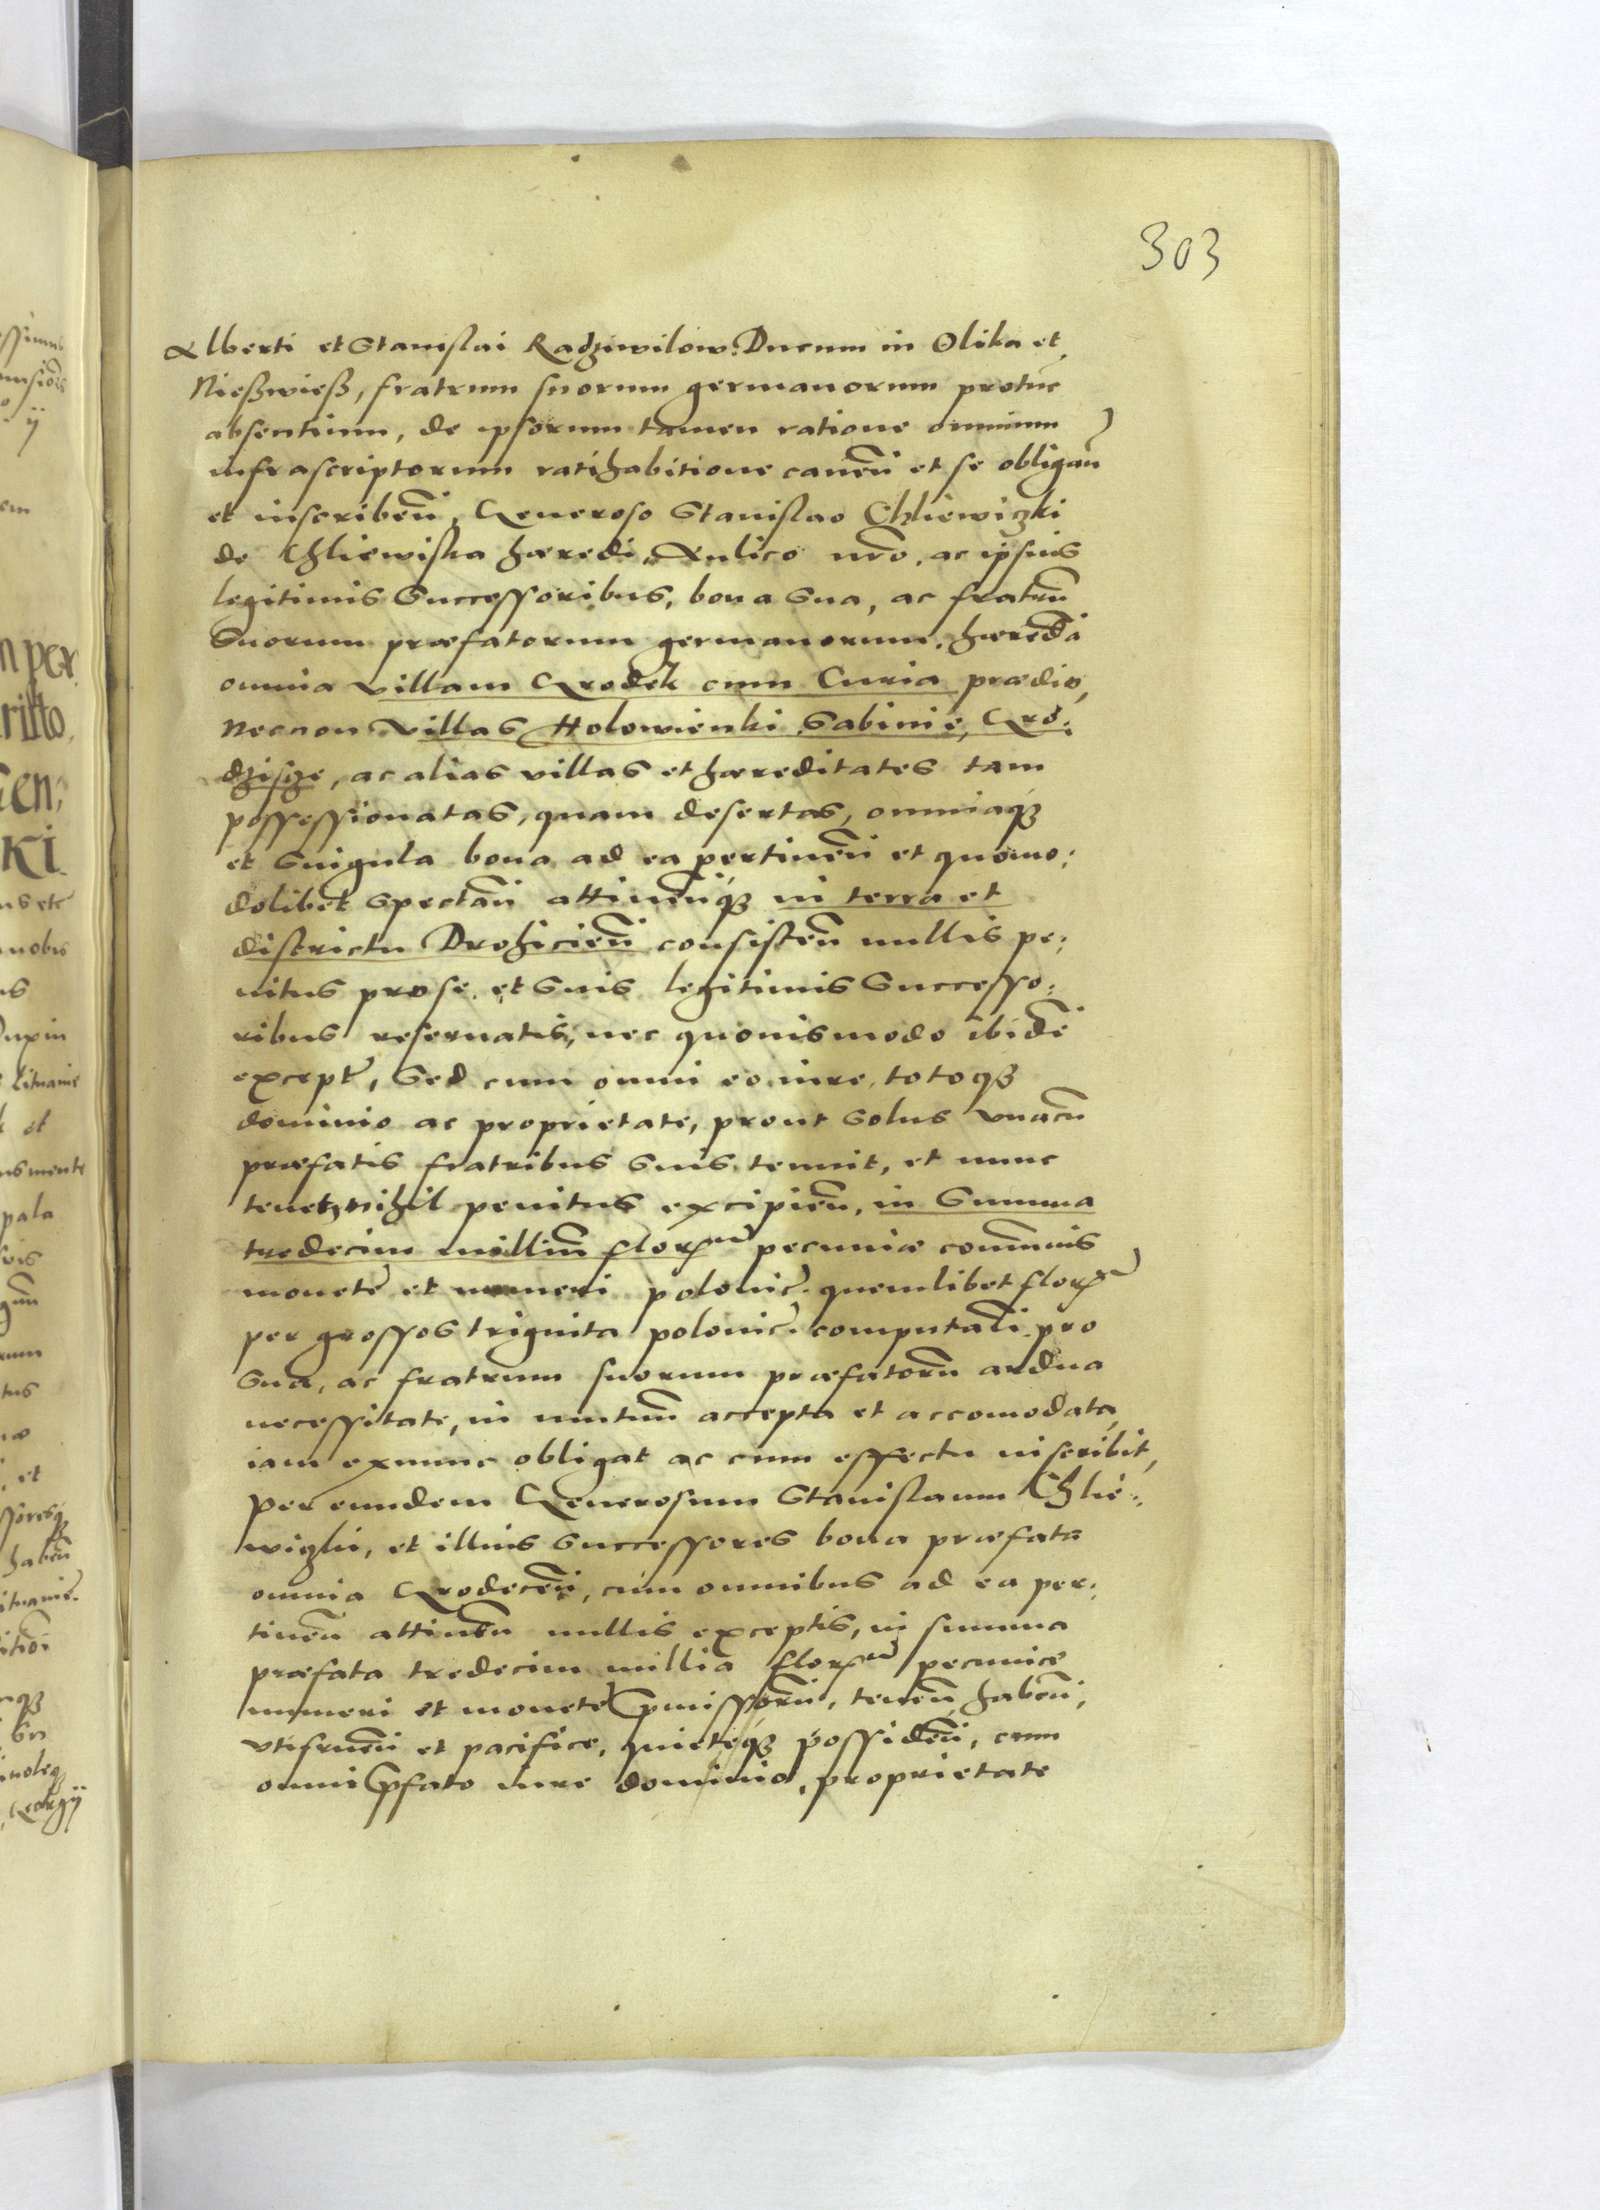 303
Alberti et Stanislai Radziwilow. Ducum in Olika et
Nießwieß, fratrum suorum germanorum protuc
absentium, de ipsorum tamen ratione omnium
infrascriptorum ratihabitione caueñ et se obligañ
et inscribeñ, Generoso Stanislao Chliewiczki
de Chliewiska hæredi, Aulico nr̄o, ac ipsius
legitimis Successoribus, bona Sua, ac fratrū
Suorum præfatorum germanorum, hæredā
omnia villam Grodek cum Curia prædio,
Necnon villas Holowienki Sabinie, Gro:
dzisze, ac alias villas et hæreditates tam
possessionatas, quam desertas, omniaqꝫ
et Singula bona ad ea pertineñ et quomo:
dolibet Spectañ attineñqꝫ in terra et
districtu Drohicieñ consisteñ nullis pe:
nitus pro se, et Suis legitimis Successo:
ribus reseruatis, nec quouismodo ibidē
except̄, Sed cum omni eo iure, totoqꝫ
dominio ac proprietate, prout Solus vnacū
præfatis fratribus Suis tenuit, et nunc
tenet, nihil penitus excipieñ, in Summa
tredecim milliū florꝝ pecuniæ com̄unis
monete et numeri polonic. quemlibet flor
per grossos triginta polonic. computañ pro
Sua, ac fratrum suorum præfatorū ardua
necessitate, in mutuū accepta et accomodata,
iam exnunc obligat ac cum effectu inscribit,
per eundem Generosum Stanislaum Chlie:
wiczki, et illius Successores bona præfata
omnia Grodeceñ, cum omnibus ad ea per:
tineñ attineñ nullis exceptis, in summa
præfata tredecim millia florꝝ pecuniæ
numeri et monete p̄missorū, teneñ, habeñ,
vtifrueñ et pacifice, quieteqꝫ possideñ, cum
omni p̄fato iure dominio, proprietate